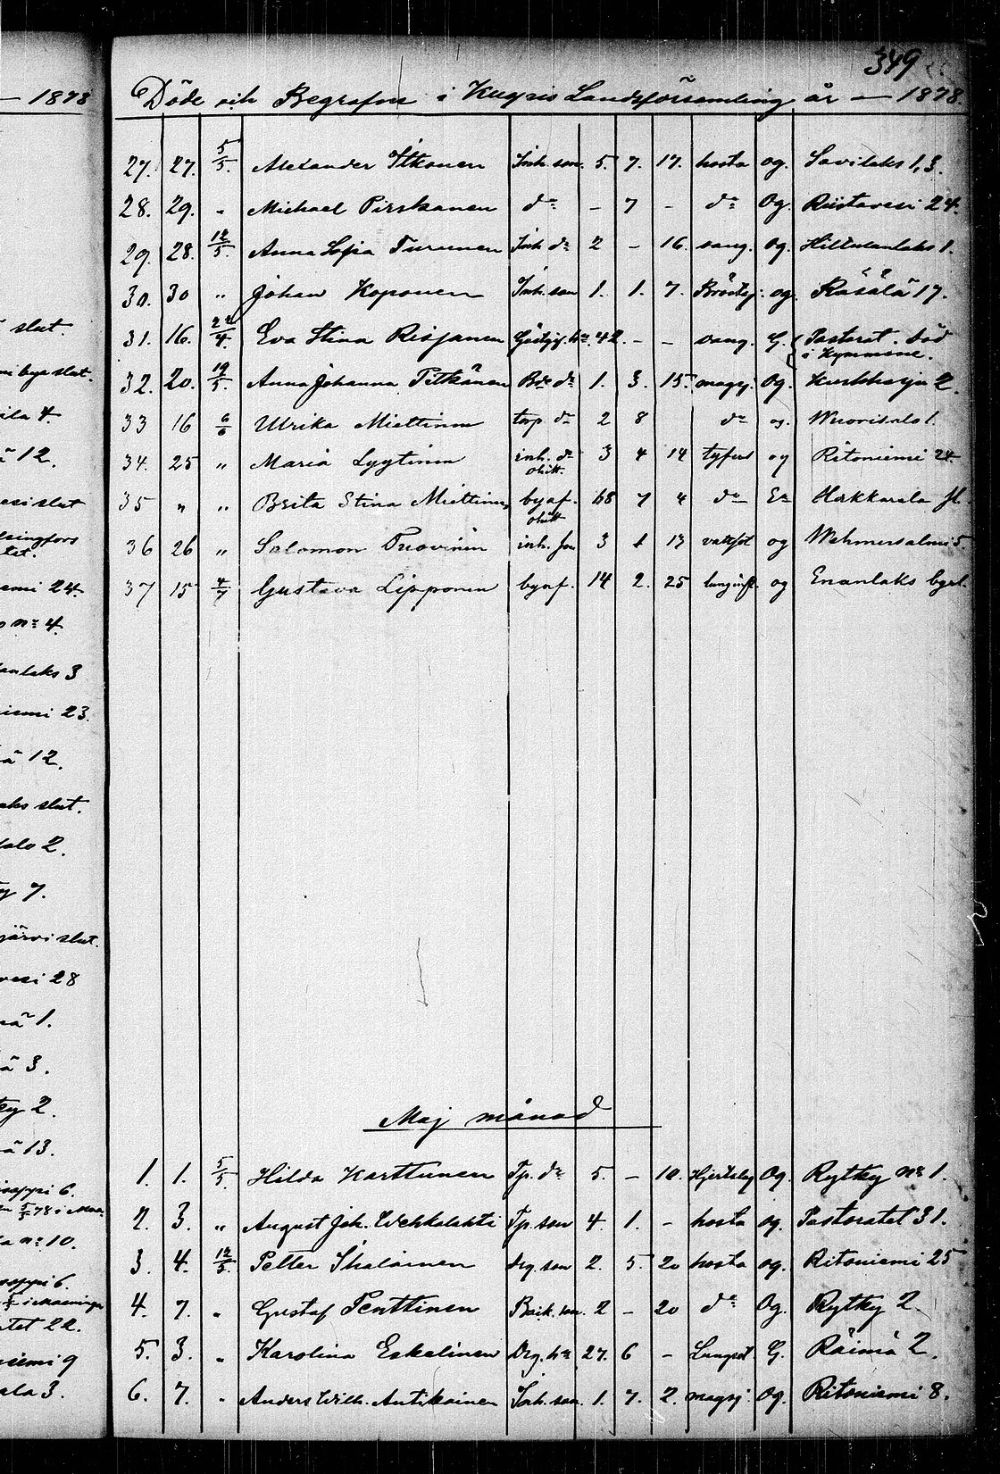 349
Döde och Begrafne i Kuopio Landsförsamling år — 1878.
27. 27. 5/5. Alexander Itkonen Inh. son. 5. 7. 17. hosta og. Savilaks 1,3.
28. 29. " Michael Pirskanen do — 7 — do Og. Ristavesi 24.
29. 28. 12/5. Anna Sofia Turunen Inh. dr 2 — 16. svag. og. Hiltulanlaks 1.
30. 30 " Johan Koponen Inh. son 1. 1. 7. Bröstsj. og. Räsälä 17.
31. 16. 22/4. Eva Stina Reijonen 42. — — svag. G. Pastorat. död
i Kymmene.
32. 20. 19/5. Anna Johanna Pitkänen Bde dr 1. 3. 15. magsj. Og. Kurkiharju 2.
33 16 6/6 Ulrika Miettinen torp. dr 2 8 do og. Wuorisalo 1.
34. 25 " Maria Lyytinen inh. dr 3 4 14 tyfus og Ritoniemi 24
oäkt.
35 " " Brita Stina Miettinen byaf. 68 7 4 do Ea Hakkarala
oäkt
36 26 " Salomon Tuovinen inh. son 3 1 13 vattsot og Wehmersalmi 5.
37 15 4/7 Gustava Lipponen byaf. 14 2. 25 lunginfl. og Enanlaks bysl.
Maj månad
1. 1. 5/5. Hilda Karttunen Tp. dr 5. — 10. Hjertslag Og. Rytky No 1.
2. 3. " August Joh. Wehkalahti Tp. son 4. 1. — hosta og. Pastoratet 31.
3. 4. 12/5. Petter Ihalainen drg. son 2. 5. 20 hosta og. Ritoniemi 25
4. 7. " Gustaf Penttinen Back. son 2 — 20 do Og. Rytky 2.
5. 3. " Karolina Eskelinen Drg. h:a 27. 6 — Lungsot G. Räimä 2.
6. 7. " Anders Wilh. Antikainen Inh. son. 1. 7. 2. magsj. Og. Ritoniemi 8.
— 1878
slut.
bya slut.
4.
12.
slut
24.
No 4.
3
23.
12.
slut.
2.
7.
järvi slut.
28
1.
3.
2.
13.
6.
No 10.
6.
22.
9
3.